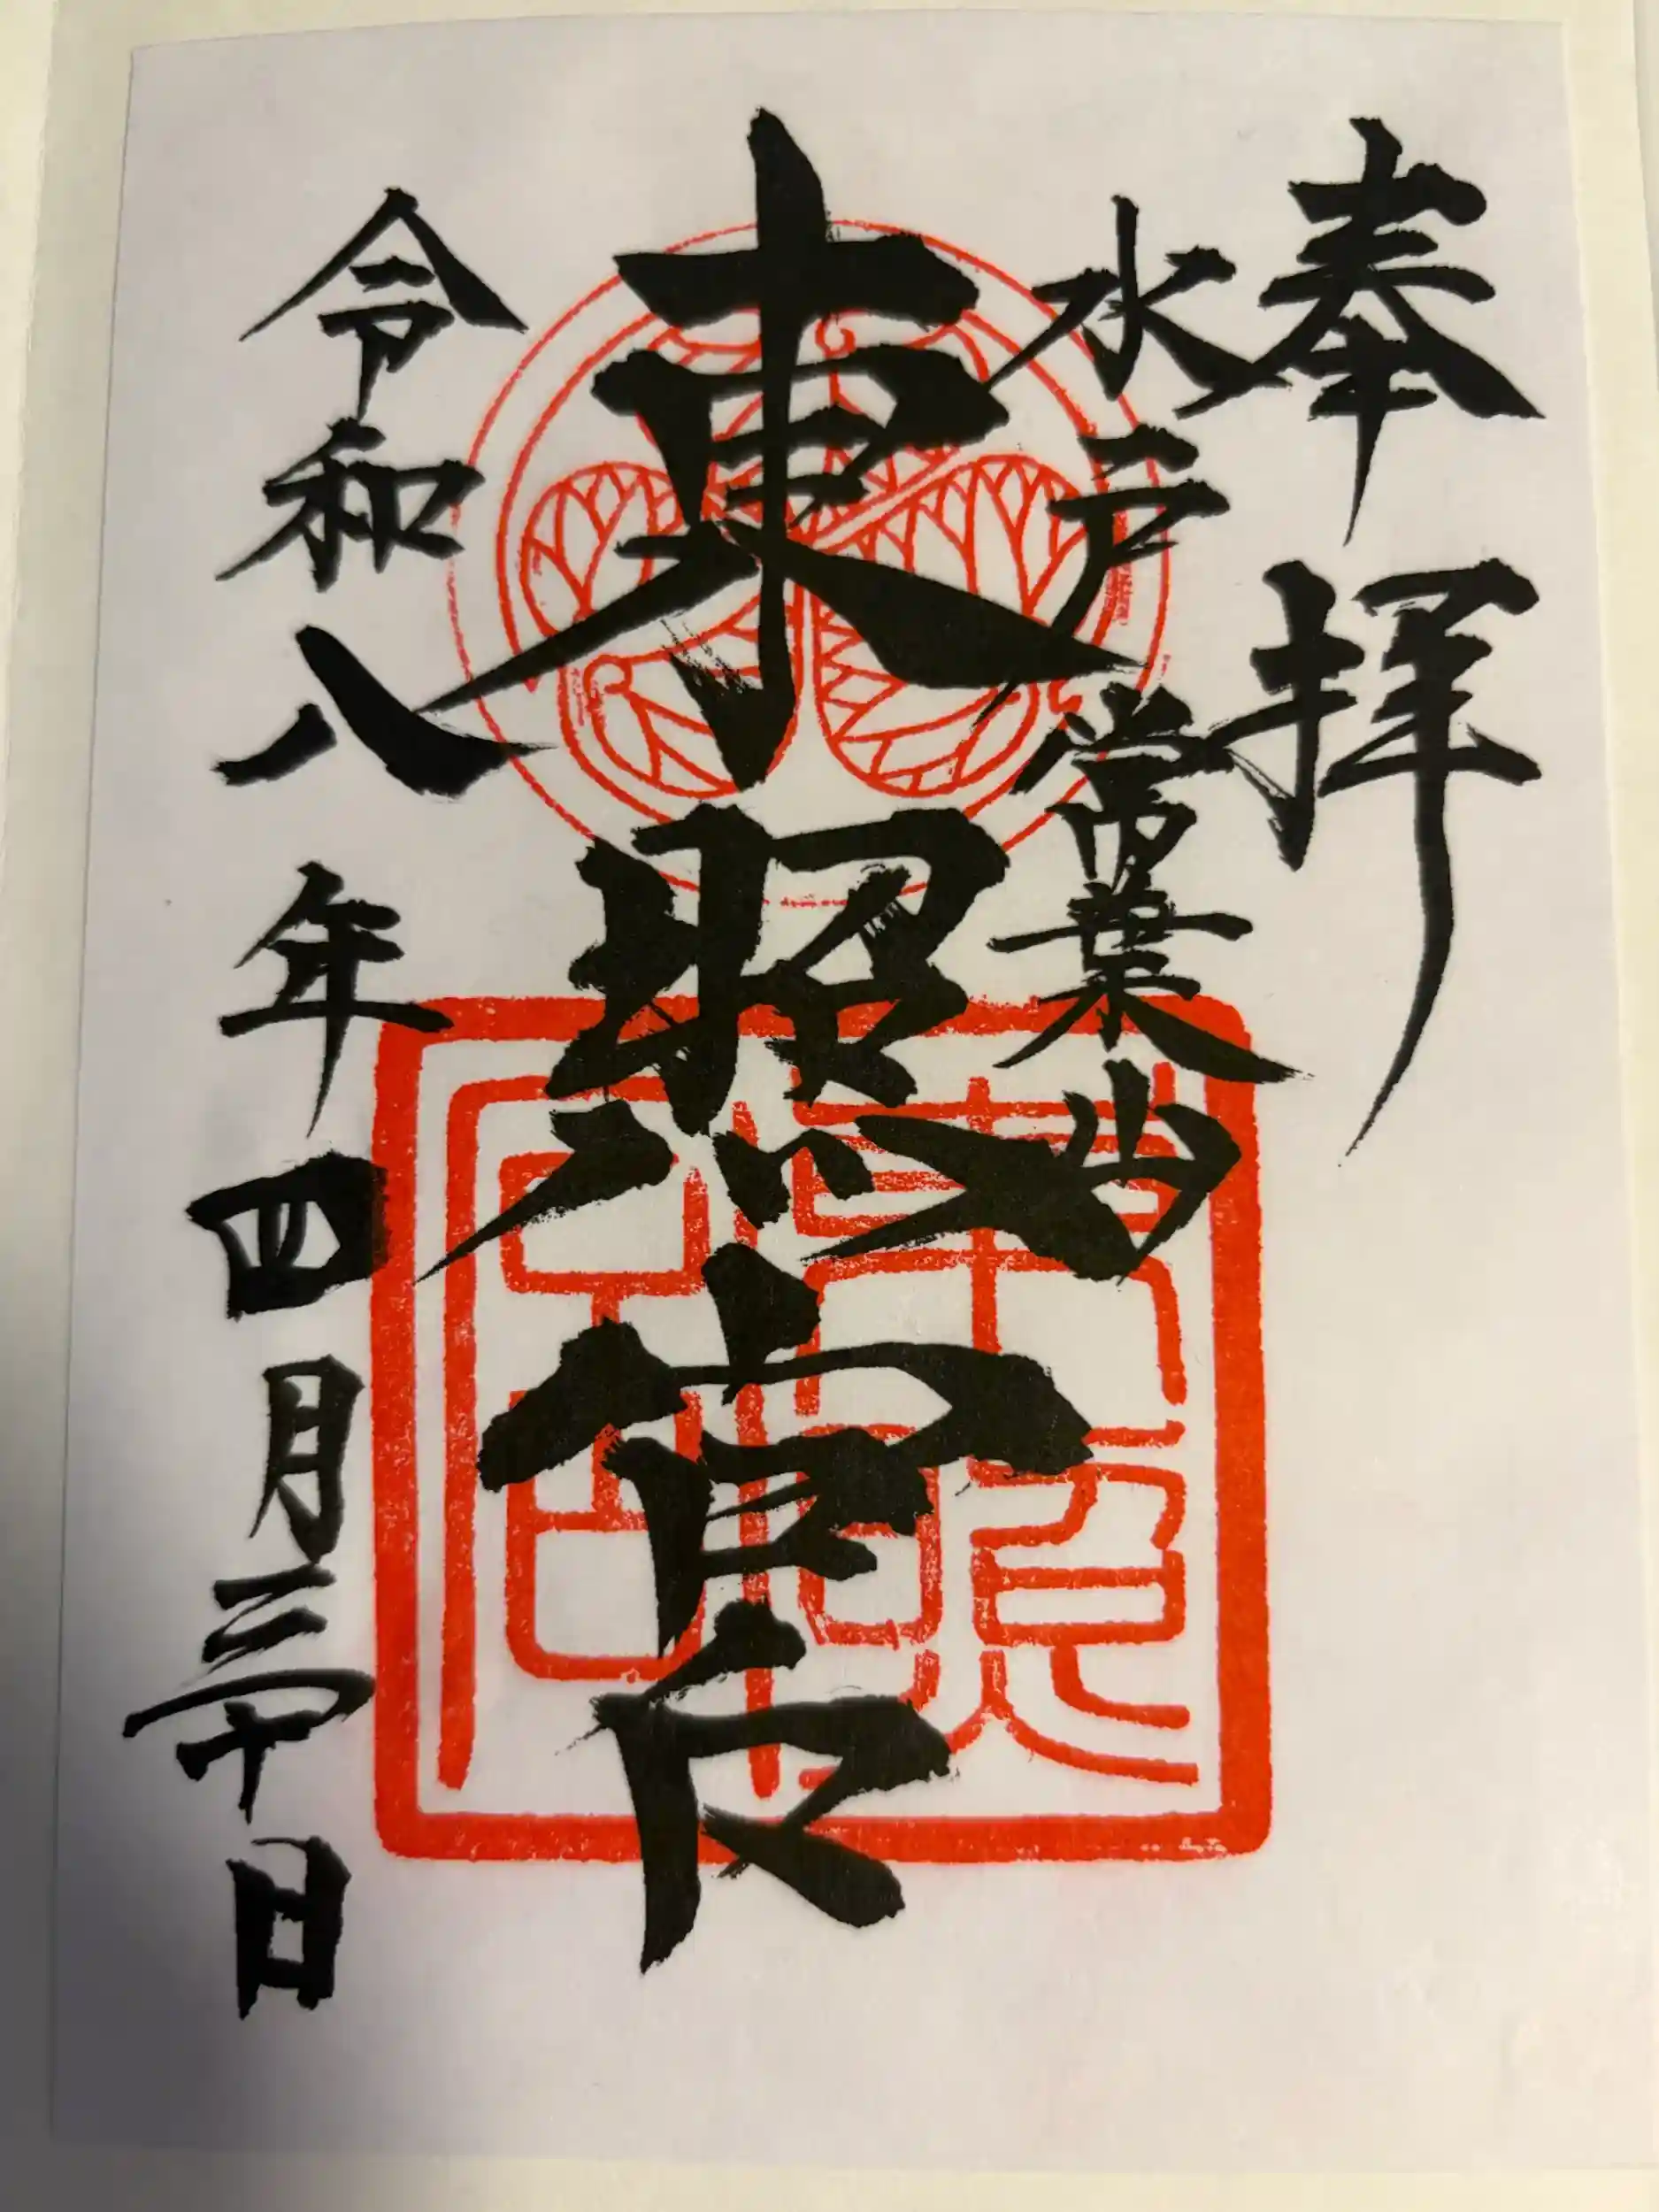 奉拝
水戸常葉山
東照宮
令和八年四月三十日